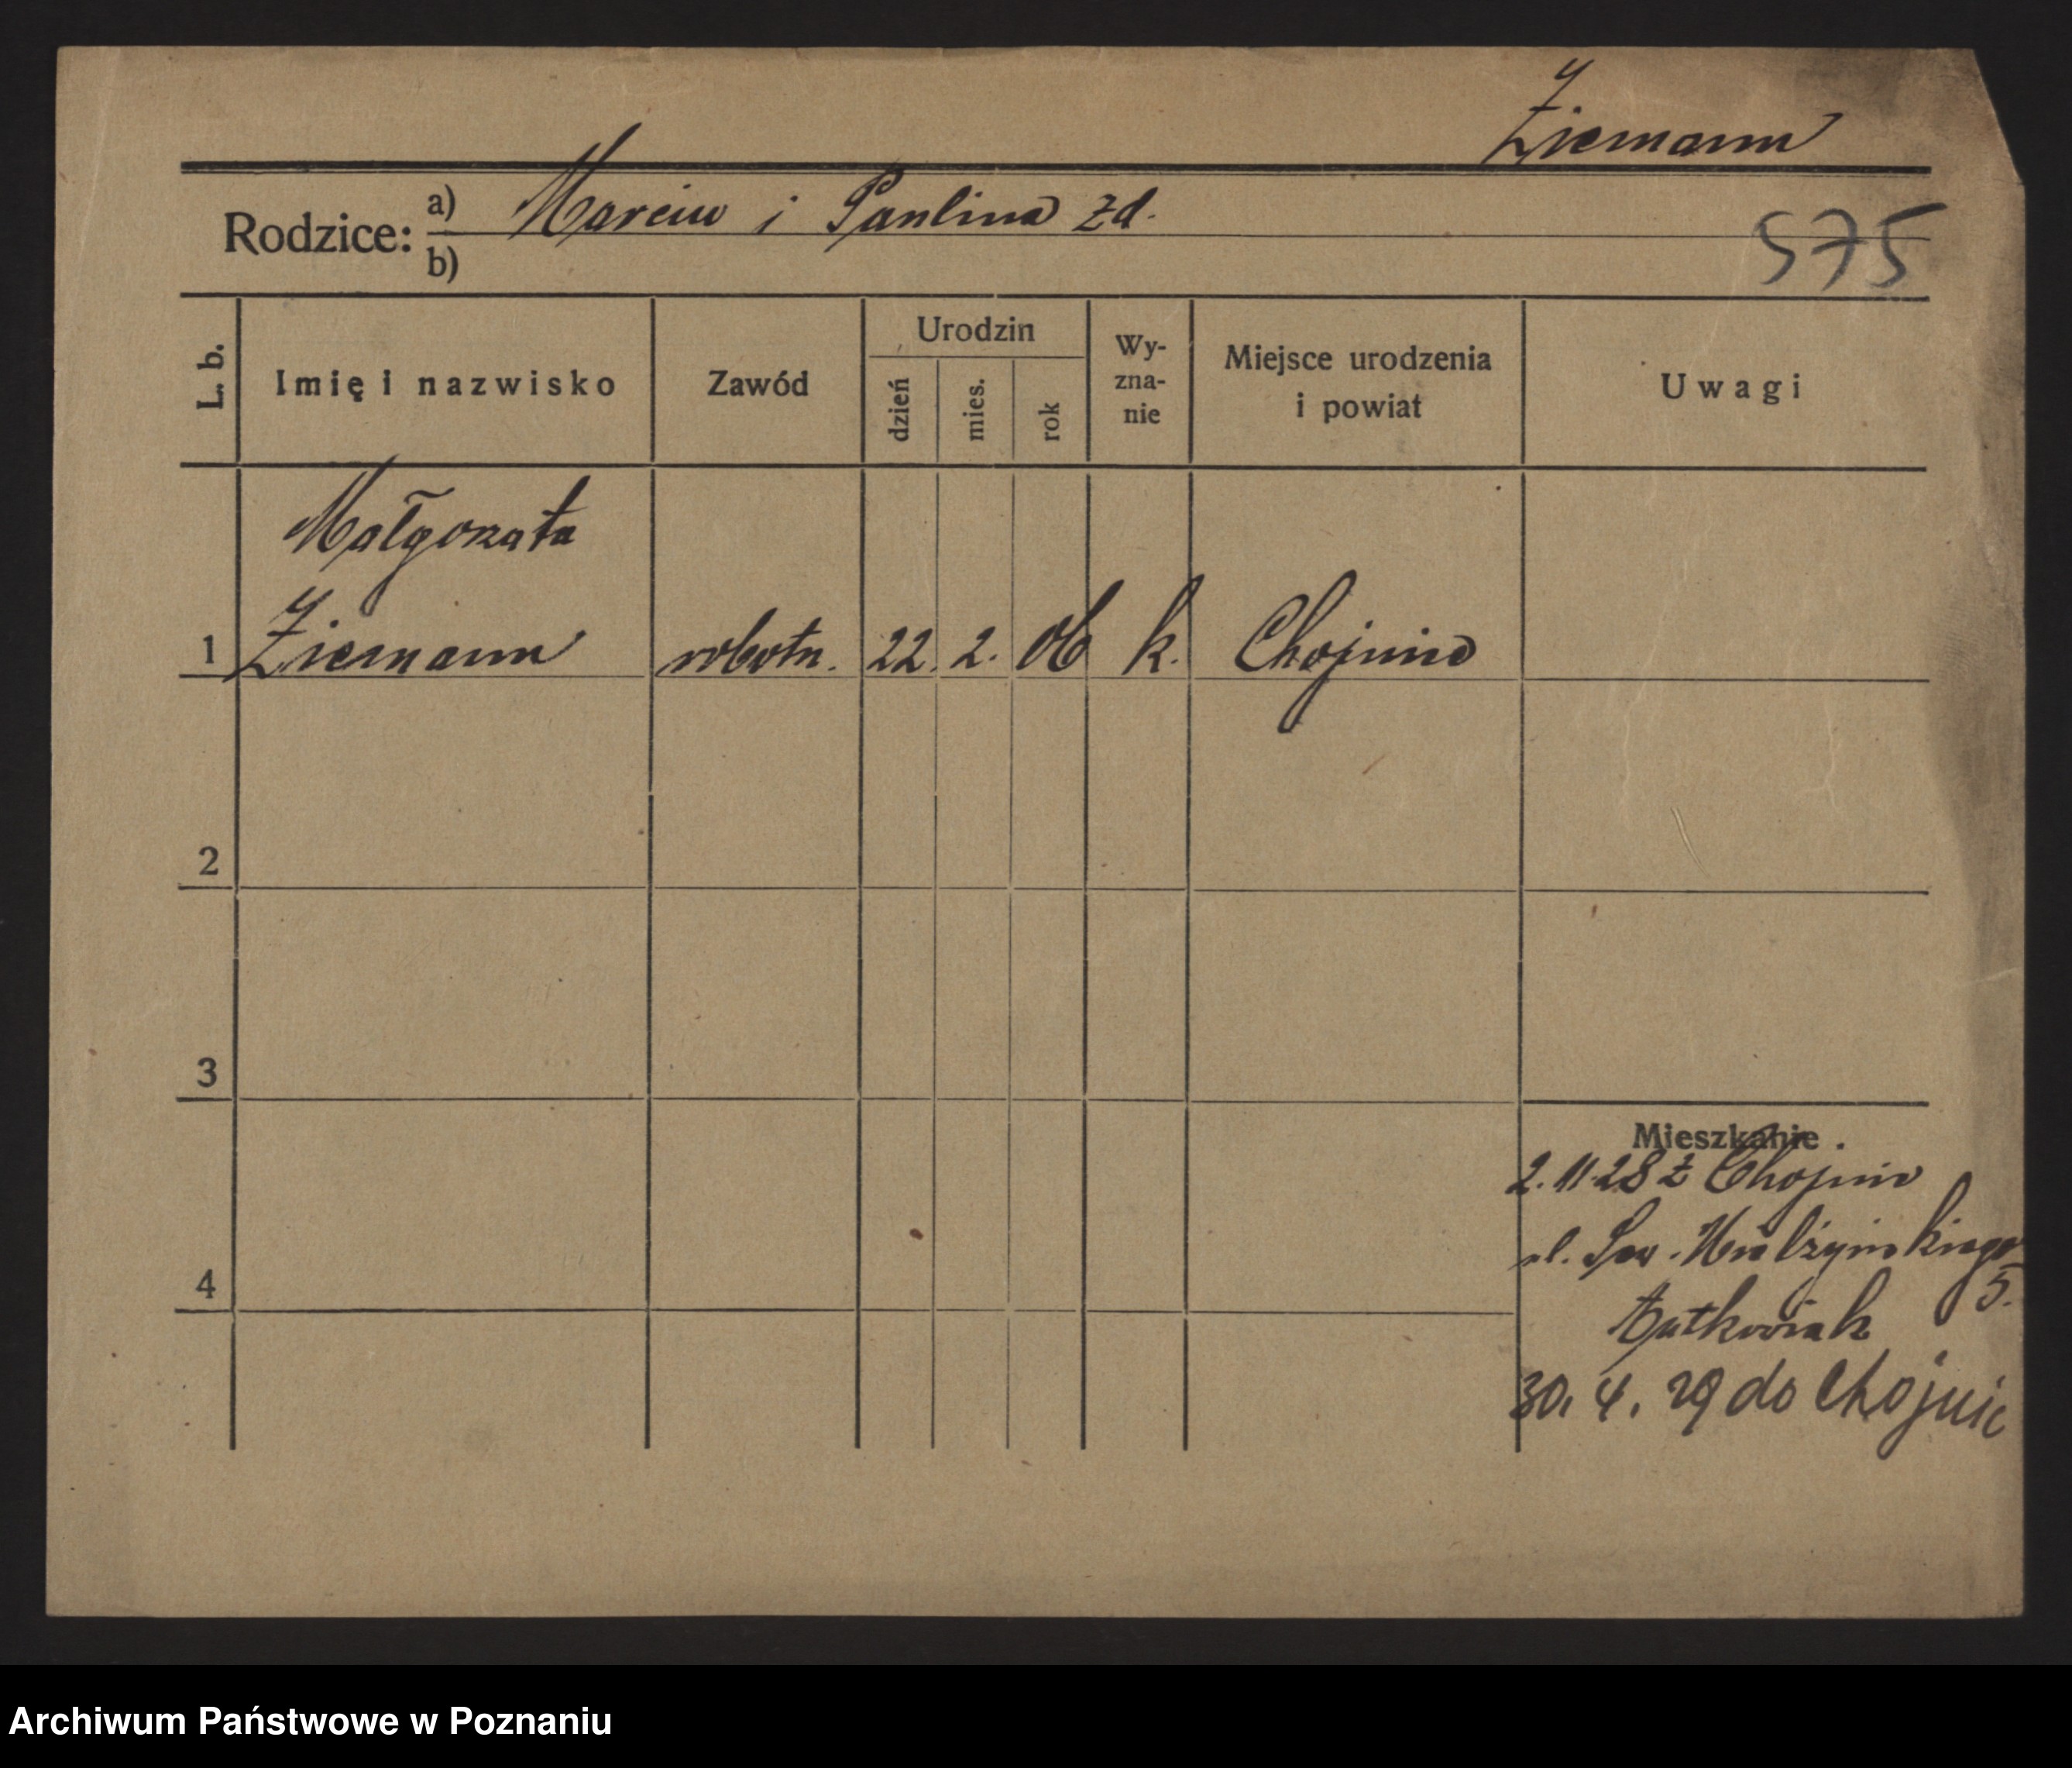 Ziemann
Rodzice: a) Marcin i Paulina zd.
b)
575
L. b. Imię i nazwisko Zawód Urodzin dzień mies. rok Wy-zna-nie Miejsce urodzenia i powiat Uwagi
Małgorzata
1 Ziemann robotn. 22. 2. 06 k. Chojnice
2
3
4
Mieszkanie
2.11.28 z Chojnic
ul.
5.
30. 4. 29 do Chojnic
Archiwum Państwowe w Poznaniu